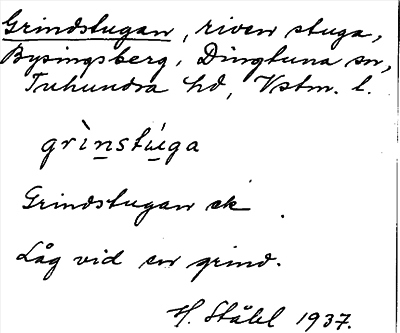 Grindstugan, riven stuga,
Bysingsberg, Dingtuna sn,
Tuhundra hd, Vstm. l.
grìnstùga
Grindstugan ek
Låg vid en grind.
H. Ståhl 1937.